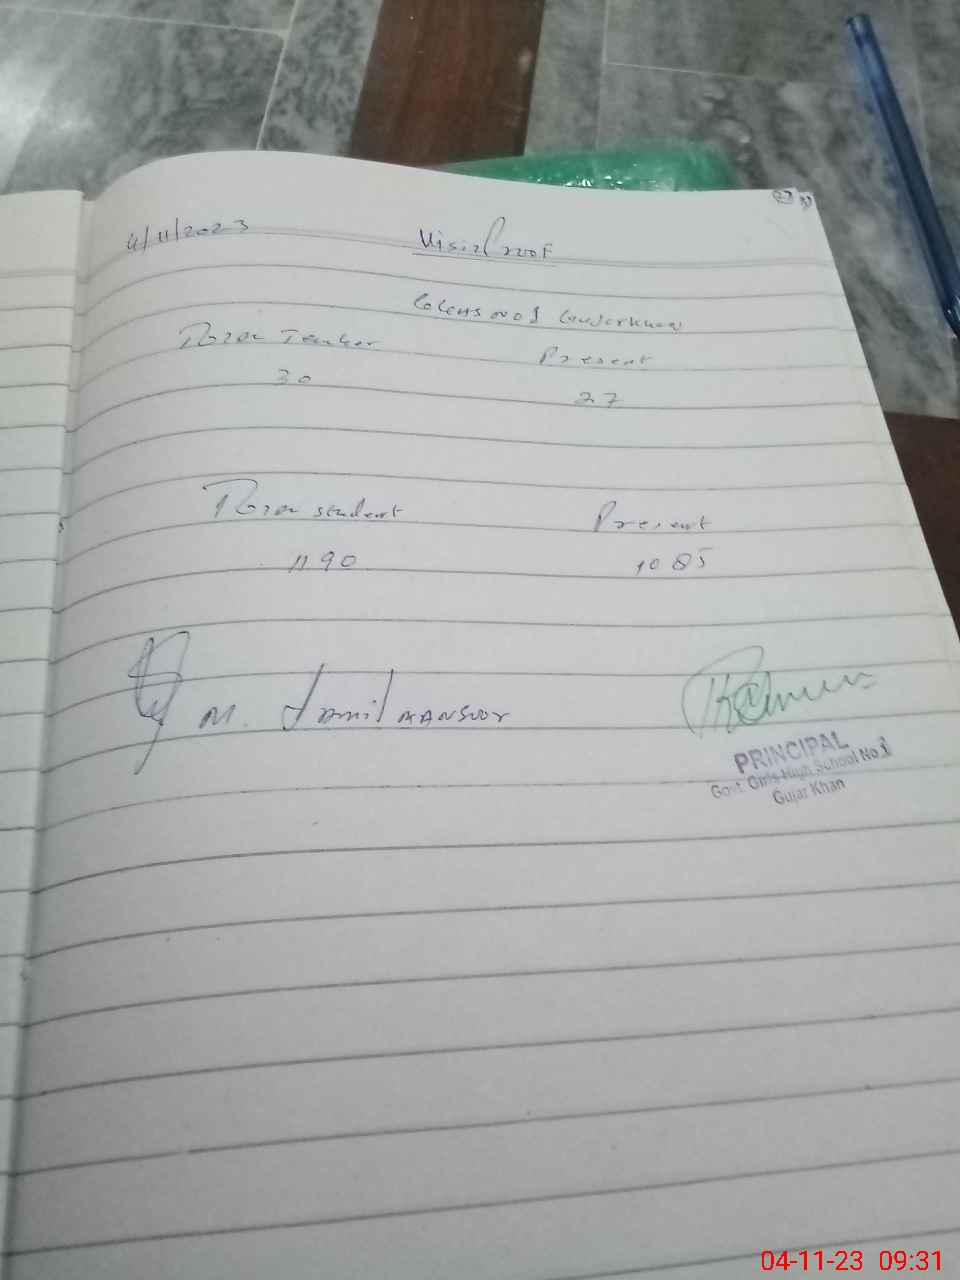 4/11/2023
Visit Proof
GGHS No 1 Gujarkhan
Total Teacher Present
30 27
Total student Present
1190 1085
M. Jamil MANSOOR
PRINCIPAL
Govt. Girls High School No.1
Gujar Khan
04-11-23 09:31